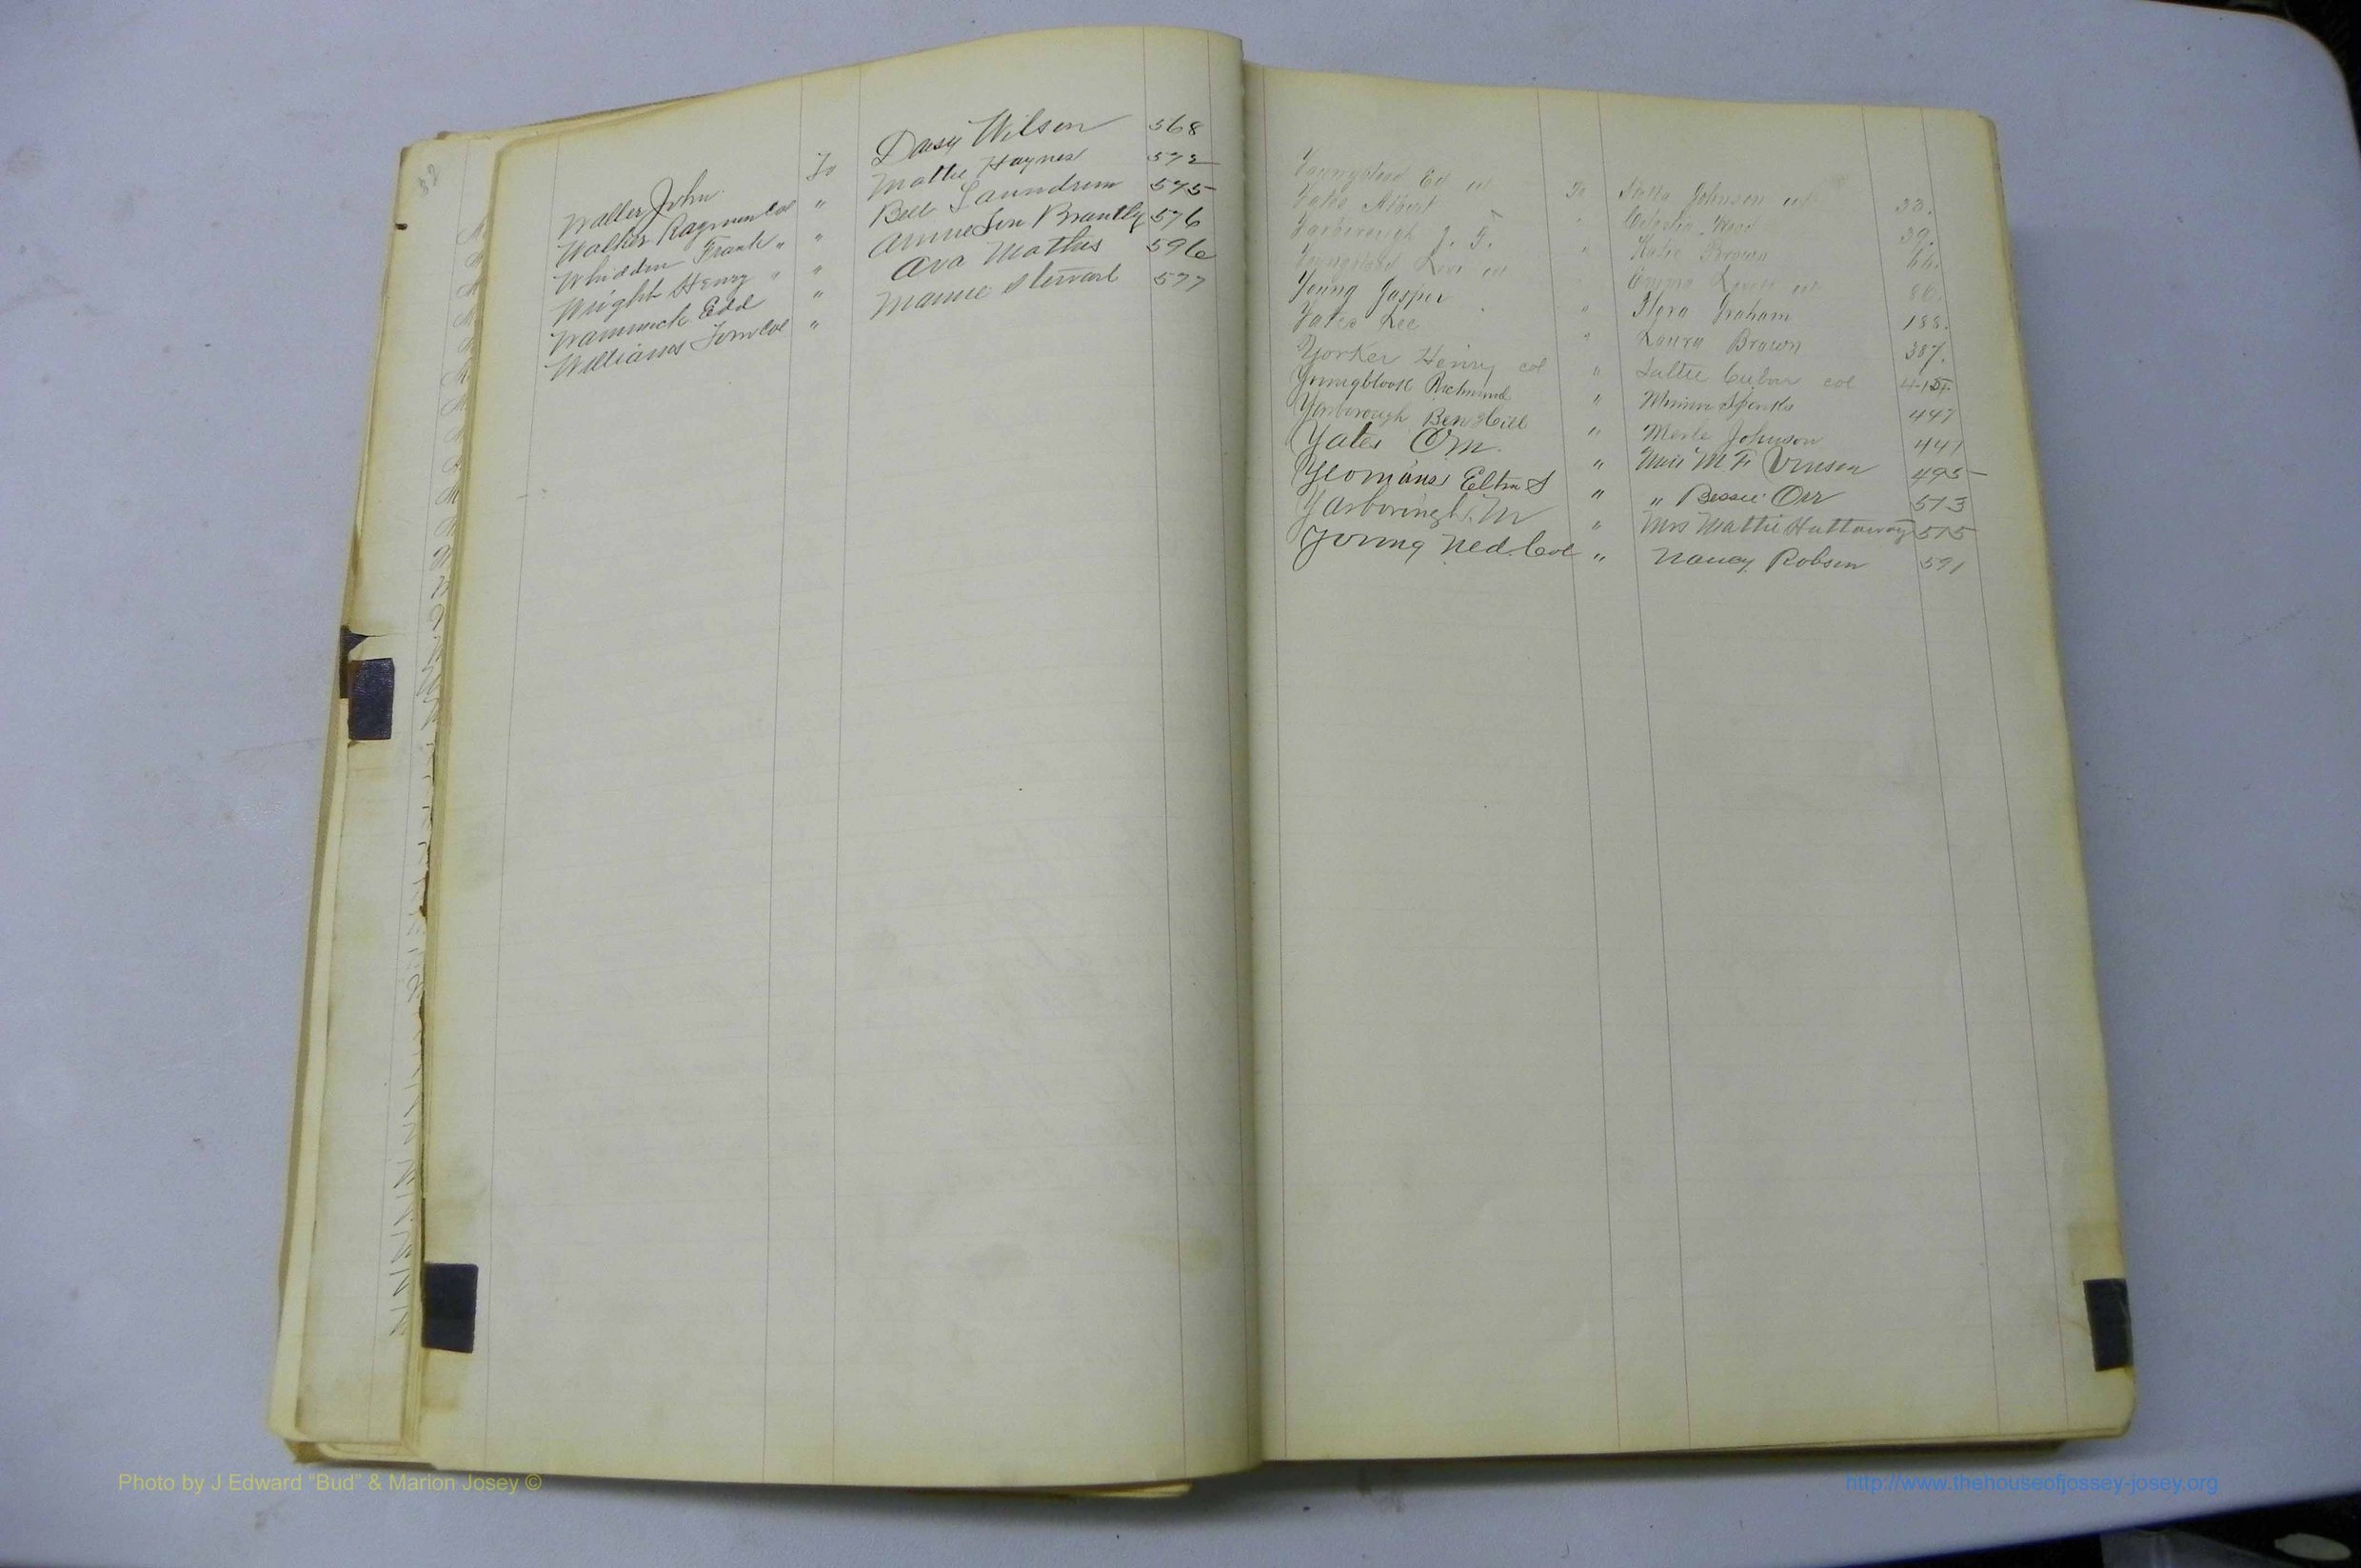 Waller John To Daisy Wilson 568
Walker Raymon Col " Mattie Haynes 572
Whidden Frank " " Bell Saundrum 575
Wright Henry " " Annie Brantly 576
Wammock Edd " Ava Mathis 596
Williams Tom Col " Mamie Stewart 577
Youngblood Ed col To Johnson col 33.
Yates Albert " Wood 39.
Yarborough J. T. " Katie Brown 66.
Youngblood Levi col " Emma col 86.
Young Jasper " Flora Graham 188.
Yates Lee " Laura Brown 387.
Yorker Henry col " Sallie col
Youngblood Richmond " Sparks 447
Yarborough Ben Hill " Merle Johnson 441
Yates O.M. " Miss M. F. Vinson 495
Yeomans Elton S " " Bessie Orr 513
Yarborough M " Mrs Mattie Hattaway 515
Young Ned. Col " Nancy Robson 591
Photo by J Edward "Bud" & Marion Josey ©
http://www.thehouseofjossey-josey.org